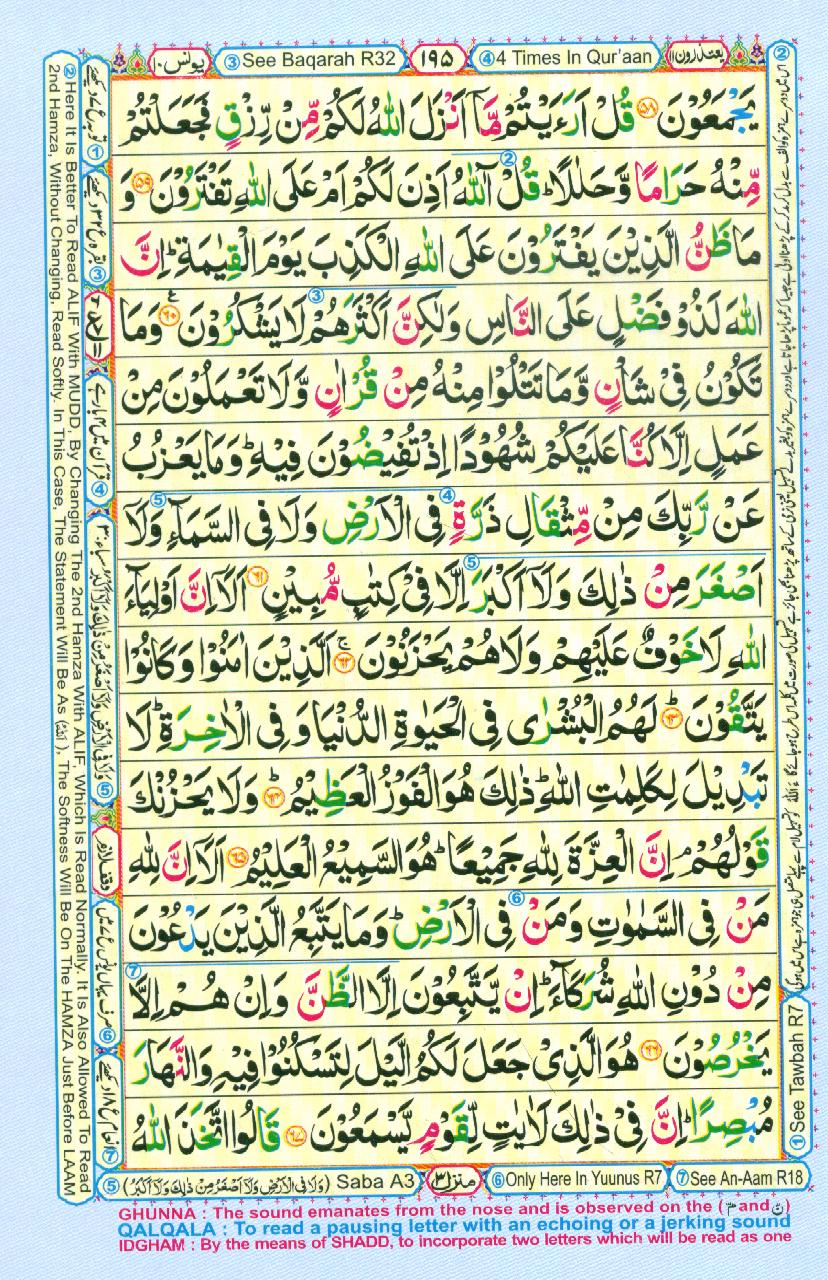 يونس ١٠
③ See Baqarah R32
١٩٥
④ 4 Times In Qur'aan
يعتذرون ١١
يَجۡمَعُوۡنَ ﴿۵۸﴾ قُلۡ اَرَءَيۡتُمۡ مَّاۤ اَنۡزَلَ اللّٰهُ لَكُمۡ مِّنۡ رِّزۡقٍ فَجَعَلۡتُمۡ
مِّنۡهُ حَرَامًا وَّحَلٰلًا ؕ قُلۡ آٰللّٰهُ اَذِنَ لَكُمۡ اَمۡ عَلَى اللّٰهِ تَفۡتَرُوۡنَ ﴿۵۹﴾ وَ
مَا ظَنُّ الَّذِيۡنَ يَفۡتَرُوۡنَ عَلَى اللّٰهِ الۡكَذِبَ يَوۡمَ الۡقِيٰمَةِ ؕ اِنَّ
اللّٰهَ لَذُوۡ فَضۡلٍ عَلَى النَّاسِ وَلٰـكِنَّ اَكۡثَرَهُمۡ لَا يَشۡكُرُوۡنَ ﴿۶۰﴾ وَمَا
تَكُوۡنُ فِىۡ شَاۡنٍ وَّمَا تَتۡلُوۡا مِنۡهُ مِنۡ قُرۡاٰنٍ وَّلَا تَعۡمَلُوۡنَ مِنۡ
عَمَلٍ اِلَّا كُنَّا عَلَيۡكُمۡ شُهُوۡدًا اِذۡ تُفِيۡضُوۡنَ فِيۡهِ ؕ وَمَا يَعۡزُبُ
عَنۡ رَّبِّكَ مِنۡ مِّثۡقَالِ ذَرَّةٍ فِى الۡاَرۡضِ وَلَا فِى السَّمَآءِ وَلَاۤ
اَصۡغَرَ مِنۡ ذٰلِكَ وَلَاۤ اَكۡبَرَ اِلَّا فِىۡ كِتٰبٍ مُّبِيۡنٍ ﴿۶۱﴾ اَلَاۤ اِنَّ اَوۡلِيَآءَ
اللّٰهِ لَا خَوۡفٌ عَلَيۡهِمۡ وَلَا هُمۡ يَحۡزَنُوۡنَ ۚ ﴿۶۲﴾ الَّذِيۡنَ اٰمَنُوۡا وَكَانُوۡا
يَتَّقُوۡنَ ؕ ﴿۶۳﴾ لَهُمُ الۡبُشۡرٰى فِى الۡحَيٰوةِ الدُّنۡيَا وَفِى الۡاٰخِرَةِ ؕ لَا
تَبۡدِيۡلَ لِكَلِمٰتِ اللّٰهِ ؕ ذٰلِكَ هُوَ الۡفَوۡزُ الۡعَظِيۡمُ ؕ ﴿۶۴﴾ وَلَا يَحۡزُنۡكَ
قَوۡلُهُمۡ ۘ اِنَّ الۡعِزَّةَ لِلّٰهِ جَمِيۡعًا ؕ هُوَ السَّمِيۡعُ الۡعَلِيۡمُ ﴿۶۵﴾ اَلَاۤ اِنَّ لِلّٰهِ
مَنۡ فِى السَّمٰوٰتِ وَمَنۡ فِى الۡاَرۡضِ ؕ وَمَا يَتَّبِعُ الَّذِيۡنَ يَدۡعُوۡنَ
مِنۡ دُوۡنِ اللّٰهِ شُرَكَآءَ ؕ اِنۡ يَّتَّبِعُوۡنَ اِلَّا الظَّنَّ وَاِنۡ هُمۡ اِلَّا
يَخۡرُصُوۡنَ ﴿۶۶﴾ هُوَ الَّذِىۡ جَعَلَ لَكُمُ الَّيۡلَ لِتَسۡكُنُوۡا فِيۡهِ وَالنَّهَارَ
مُبۡصِرًا ؕ اِنَّ فِىۡ ذٰلِكَ لَاٰيٰتٍ لِّقَوۡمٍ يَّسۡمَعُوۡنَ ﴿۶۷﴾ قَالُوا اتَّخَذَ اللّٰهُ
② Here It Is Better To Read ALIF With MUDD, By Changing The 2nd Hamza With ALIF, Which Is Read Normally. It Is Also Allowed To Read
2nd Hamza, Without Changing, Read Softly. In This Case, The Statement Will Be As (ءَاَللّٰهُ), The Softness Will Be On The HAMZA Just Before LAAM
① See Tawbah R7
⑤ (وَلَا فِى الۡاَرۡضِ وَلَاۤ اَصۡغَرُ مِنۡ ذٰلِكَ وَلَاۤ اَكۡبَرُ) Saba A3
منزل ٣
⑥ Only Here In Yuunus R7
⑦ See An-Aam R18
GHUNNA : The sound emanates from the nose and is observed on the (مّ and نّ)
QALQALA : To read a pausing letter with an echoing or a jerking sound
IDGHAM : By the means of SHADD, to incorporate two letters which will be read as one